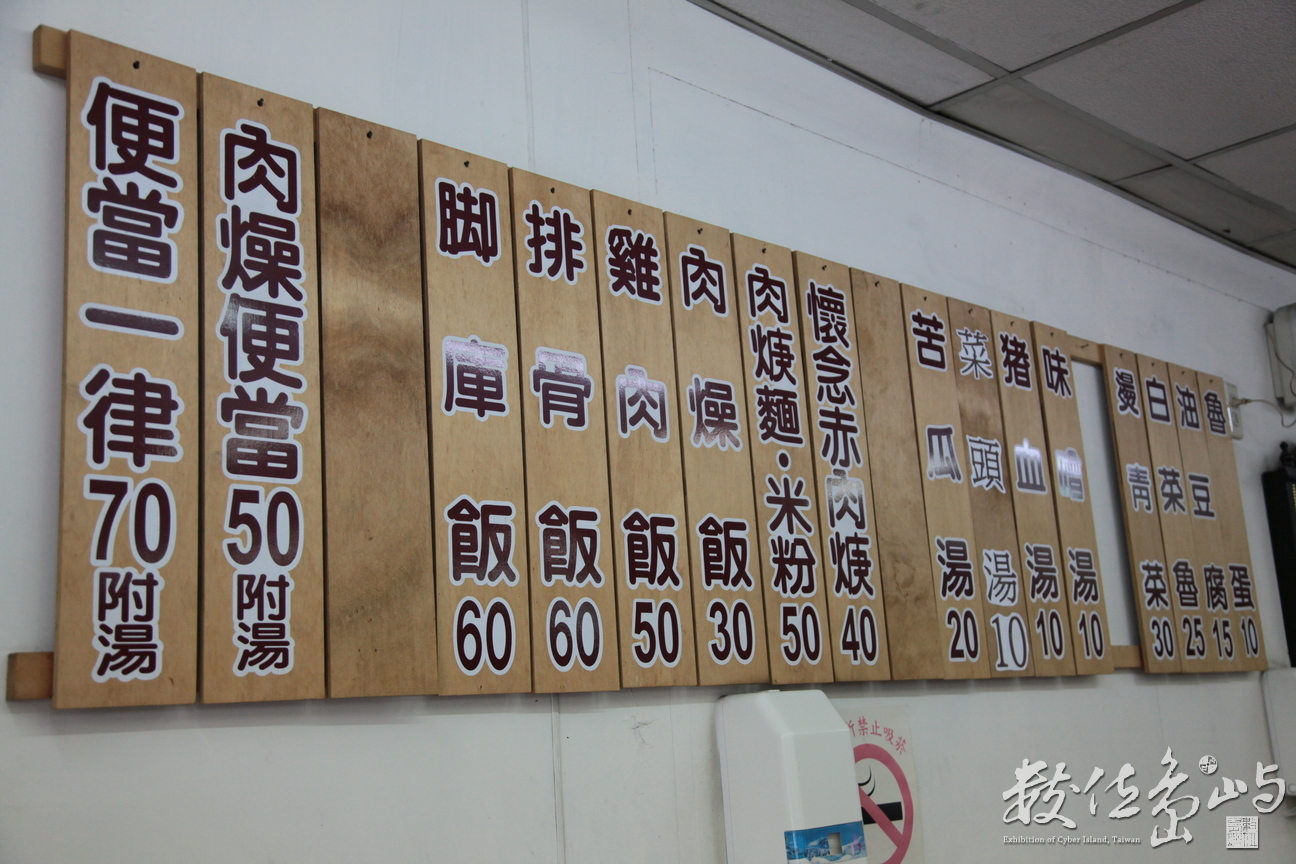 便當一律70附湯
肉燥便當50附湯
脚庫飯60
排骨飯60
雞肉飯50
肉燥飯30
肉焿麵·米粉50
懷念赤肉焿40
苦瓜湯20
菜頭湯10
猪血湯10
味噌湯10
燙青菜30
白菜魯25
油豆腐15
魯蛋10
禁止吸菸
數位島嶼
Exhibition of Cyber Island, Taiwan